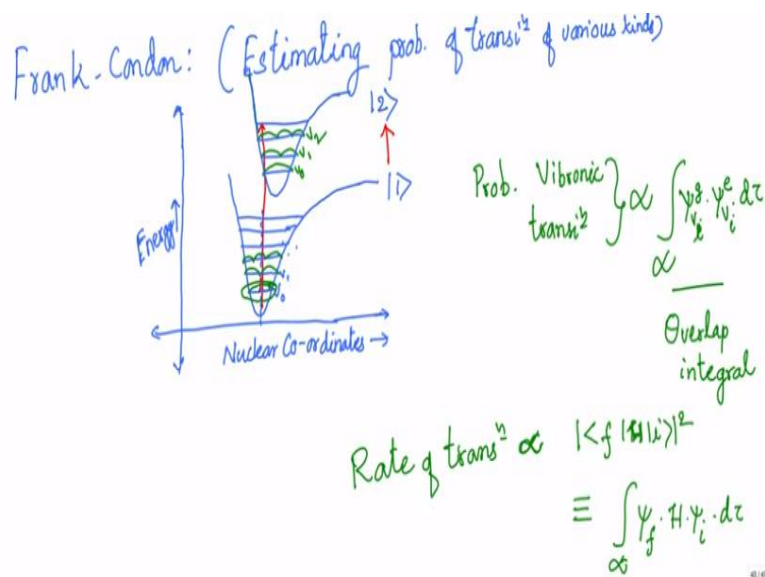 Frank-Condon: (Estimating prob. of transiⁿ of various kinds)
|2>
v₂
v₁
v₀
|1>
Energy →
v₀
Nuclear Co-ordinates →
Prob. Vibronic
transiⁿ } ∝ ∫ ψ^g_{v_i} · ψ^e_{v_i} dτ
∝
Overlap
integral
Rate of transⁿ ∝ |<f|H|i>|²
≡ ∫ ψ_f · H · ψ_i · dτ
∝